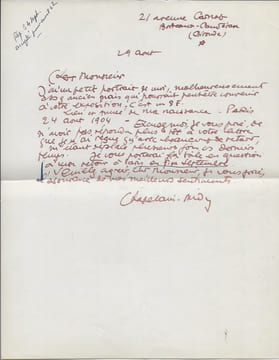 21 avenue Carnot
Bordeaux-Caudéran
(Gironde)
29 août
Cher Monsieur
J'ai un petit portrait, je moi, malheureusement
ancien mais qui pourrait peut-être convenir
à votre exposition, c'est un 8F.
Lieu et année de ma naissance. Paris
24 août 1904 — Excusez moi, je vous prie, de
n'avoir pas répondu plus tôt à votre lettre
que je n'ai reçue qu'avec beaucoup de retard,
m'étant déplacé plusieurs fois ces derniers
temps. Je vous porterai la toile en question
à mon retour à Paris en fin septembre
Veuillez agréer, cher Monsieur, je vous prie,
l'assurance de mes meilleurs sentiments.
Chapelain-Midy